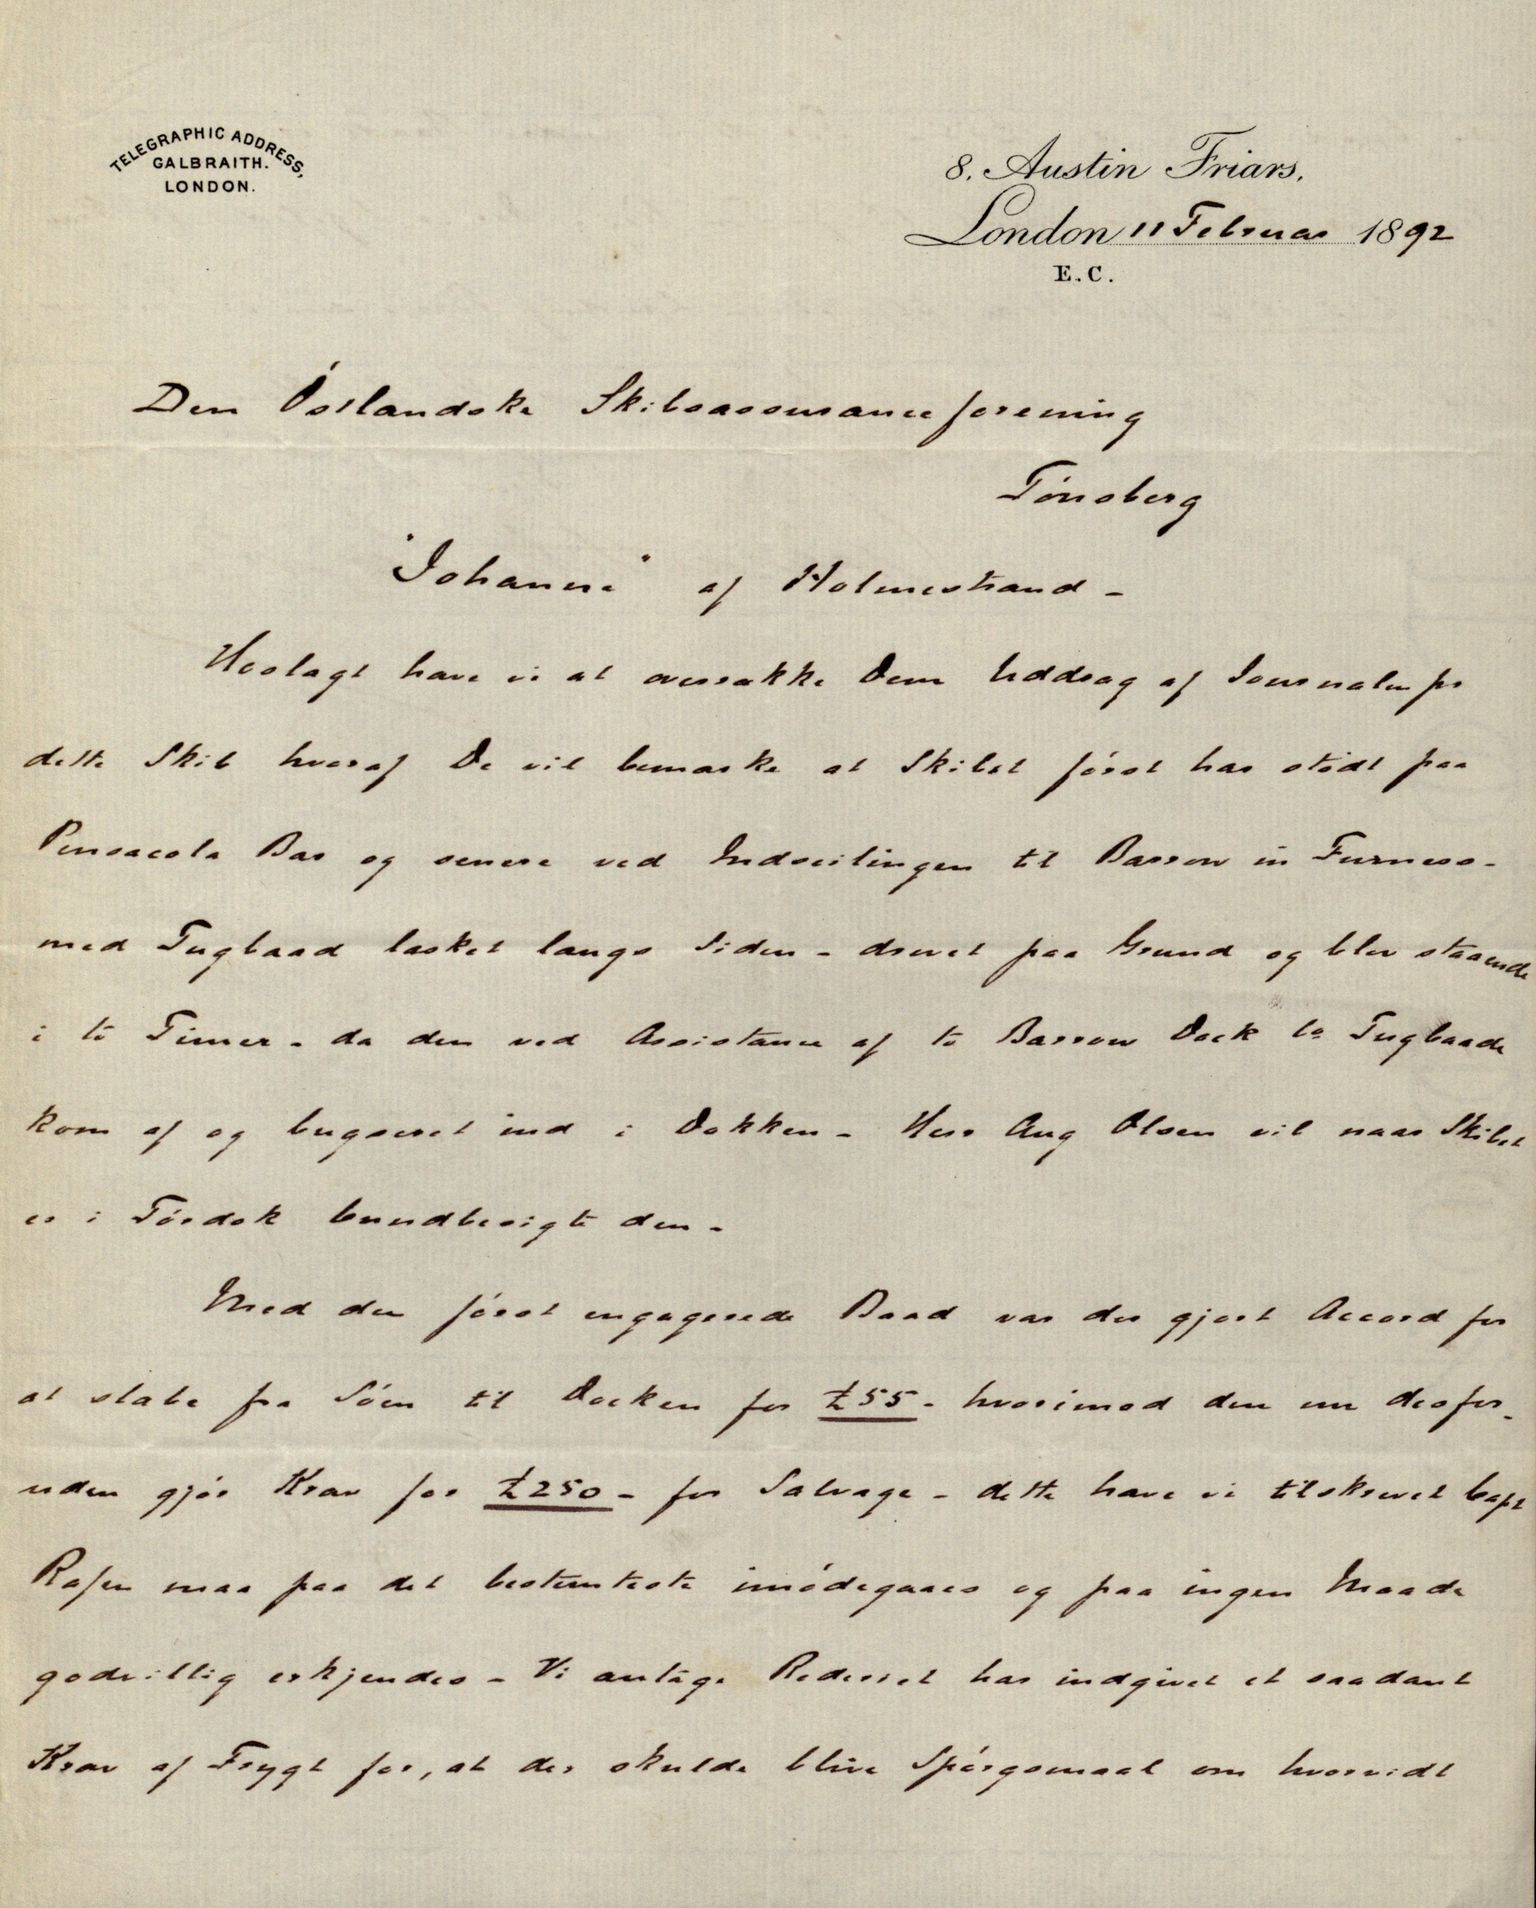 TELEGRAPHIC ADDRESS,
GALBRAITH.
LONDON.
8. Austin Friars.
London 11 Februar 1892
E.C.
Den Östlandske Skibsassuranceforening
Tönsberg
"Johanne" af Holmestrand -
Hoslagt have vi at overrække Dem Uddrag af Journalen fr
dette Skib hvoraf De vil bemærke at Skibet först har stödt paa
Pensacola Bar og senere ved Indseilingen til Barrow in Furness -
med Tugbaad lasket langs Siden - drevet paa Grund og blev staaende
i to Timer - da den ved Assistance af to Barrow Dock Co Tugbaade
kom af og bugseret ind i Dokken - Herr Aug Olsen vil naar Skibet
er i Tördok bundbesigte den -
Med den först engagerede Baad var der gjort Accord for
at slæbe fra Söen til Docken for £55 - hvorimod den nu desfor-
uden gjör Krav for £250 - for Salvage - dette have vi tilskrevet Capt
Rafen maa paa det bestemteste imödegaaes og paa ingen Maade
godvillig erkjendes - Vi antage Rederiet har indgivet et saadant
Krav af Frygt for, at der skulde blive Spörgsmaal om hvorvidt